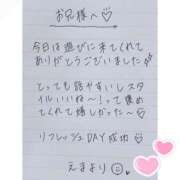 お兄様へ♡
今日は遊びに来てくれて
ありがとうございました
とっても話やすいしスタ
イルいいね〜！って褒め
てくれて嬉しかった〜
リフレッシュDAY成功♡
えまより☺